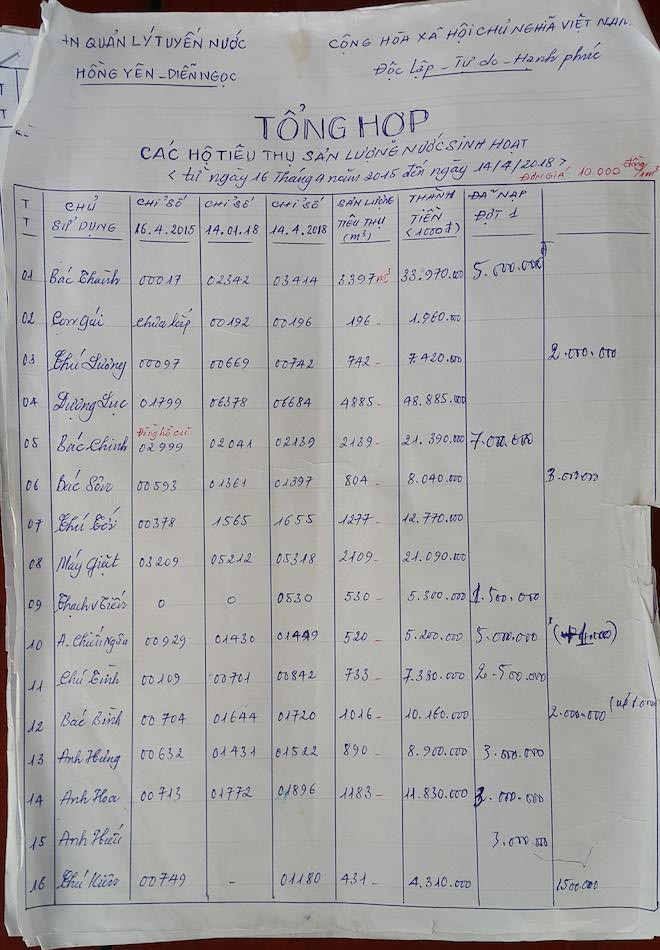 QUẢN LÝ TUYẾN NƯỚC
HỒNG YÊN - DIỄN NGỌC
CỘNG HÒA XÃ HỘI CHỦ NGHĨA VIỆT NAM
Độc lập - Tự do - Hạnh phúc
TỔNG HỢP
CÁC HỘ TIÊU THỤ SẢN LƯỢNG NƯỚC SINH HOẠT
< từ ngày 16 tháng 4 năm 2015 đến ngày 14/4/2018 >
ĐƠN GIÁ: 10.000 đồng/m³
TT CHỦ SỬ DỤNG CHỈ SỐ 16.4.2015 CHỈ SỐ 14.01.18 CHỈ SỐ 14.4.2018 SẢN LƯỢNG TIÊU THỤ (m³) THÀNH TIỀN <1000đ> ĐÃ NẠP ĐỢT 1
01 Bác Thành 00017 02342 03414 3397 m³ 33.970.000 5.000.000đ
02 Con gái chưa lắp 00192 00196 196 - 1.960.000
03 Chú Lương 00097 00669 00742 742 - 7.420.000 2.000.000
04 Dượng Lục 01799 06378 06684 4885 - 48.885.000
05 Bác Chinh Đồng hồ cũ 02999 02041 02139 2139 - 21.390.000 7.000.000
06 Bác Sơn 00593 01361 01397 804 - 8.040.000 3.000.000
07 Chú 00378 1565 1655 1277 - 12.770.000
08 Máy Giặt 03209 05212 05318 2109 - 21.090.000
09 Thạch v 0 0 0530 530 - 5.300.000 1.500.000
10 A. Chiến Ngân 00929 01430 01449 520 - 5.200.000 5.000.000
11 Chú 00109 00701 00842 733 - 7.330.000 2.500.000
12 Bác Bình 00704 01644 01720 1016 - 10.160.000 2.000.000
13 Anh Hưng 00632 01431 01522 890 - 8.900.000 3.000.000
14 Anh Hoa 00713 01772 01896 1183 - 11.830.000 .000.000
15 Anh Hiếu 3.000.000
16 Chú Kiên 00749 - 01180 431 - 4.310.000 1500.000